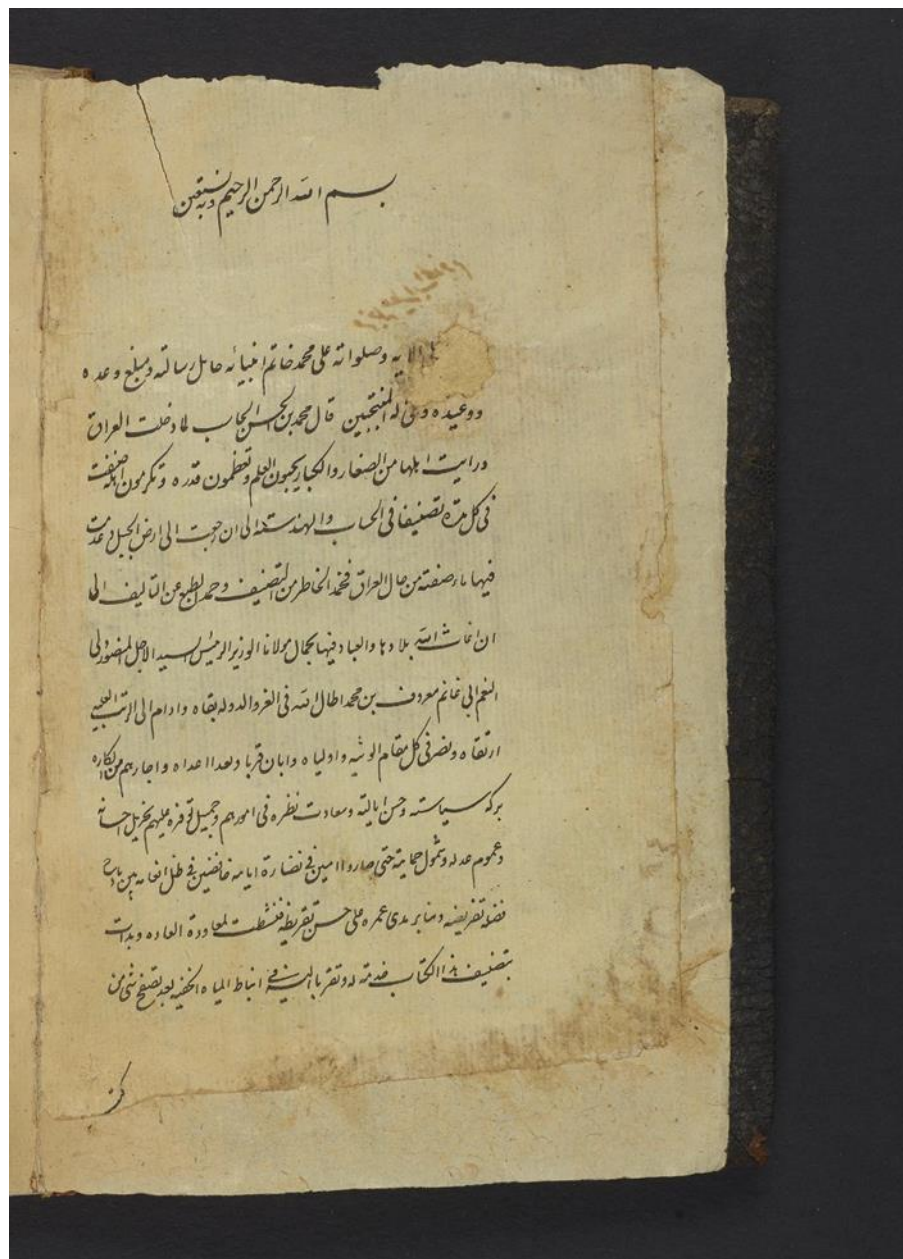 بسم الله الرحمن الرحيم وبه نستعين
وصلواته على محمد خاتم انبيائه حامل رسالته ومبلغ وعده
ووعيده وعلى آله المنتجبين قال محمد بن الحسن الحاسب لما دخلت العراق
ورايت اهلها من الصغار والكبار يحبون العلم وتعظمون قدره وتكرمون اهله صنفت
فى كل مدة تصنيفا فى الحساب والهندسة الى ان رجعت الى ارض الجبل وعدمت
فيها ما وصفته من حال العراق فخمد الخاطر من التصنيف وجمد الطبع عن التاليف الى
ان اغاث الله بلادها والعباد فيها بجمال مولانا الوزير الرئيس السيد الاجل المنصور ولى
النعم ابى غانم معروف بن محمد اطال الله فى العز والدوله بقاه وادام الى الرتب العليه
ارتقاه ونصر فى كل مقام الويته واولياه وابان قربا وبعدا اعداه واجارهم من المكاره
بركة سياسته وحسن ايالته وسعادت نظره فى امورهم وجميل توفره عليهم بجزيل احسانه
وعموم عدله وشمول حمايته حتى صاروا امنين فى نضارة ايامه خافضين فى ظل انعامه بين
تقريضه وصابر مدى عمره على حسن تقريظه فنشطت لمعاودة العاده وبدات
بتصنيف هذا الكتاب خدمة له وتقربا اليه فى انباط المياه الخفيه بعد تصفح شى من